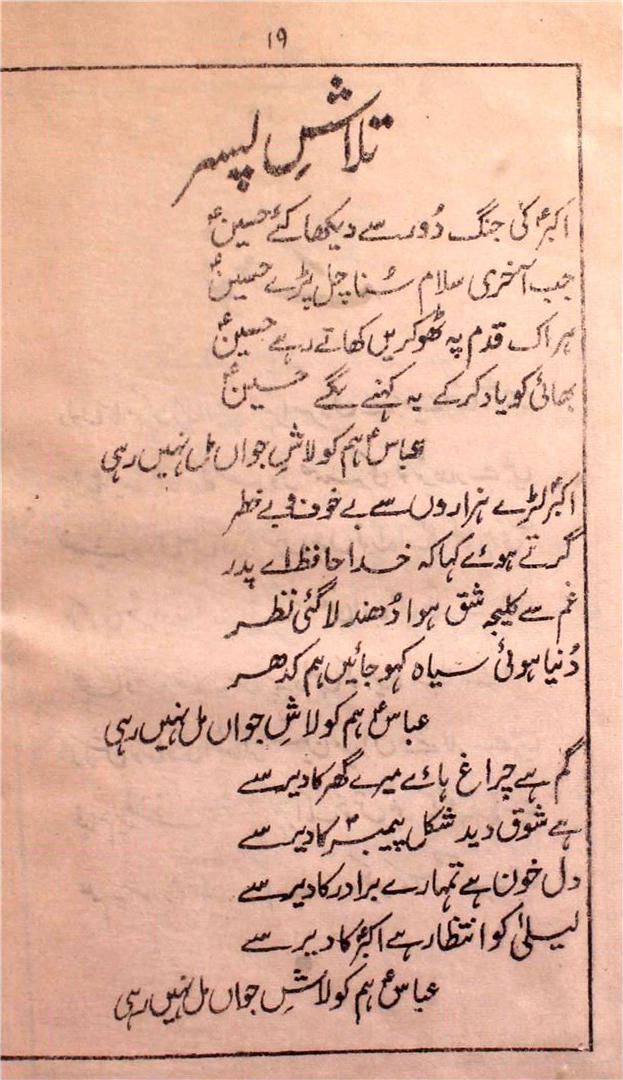 ۱۹
تلاشِ پسر
اکبرؑ کی جنگ دُور سے دیکھا کئے حسینؑ
جب آخری سلام سُنا چل پڑے حسینؑ
ہر اک قدم پہ ٹھوکریں کھاتے رہے حسینؑ
بھائی کو یاد کرکے یہ کہنے لگے حسینؑ
عباسؑ ہم کو لاشِ جواں مل نہیں رہی
اکبرؑ لڑے ہزاروں سے بے خوف و بے خطر
گرتے ہوئے کہا کہ خدا حافظ اے پدر
غم سے کلیجہ شق ہوا دُھندلا گئی نظر
دُنیا ہوئی سیاہ کہو جائیں ہم کدھر
عباسؑ ہم کو لاشِ جواں مل نہیں رہی
گم ہے چراغ ہائے میرے گھر کا دیر سے
ہے شوق دید شکل پیمبرؐ کا دیر سے
دل خون ہے تمہارے برادر کا دیر سے
لیلیٰ کو انتظار ہے اکبرؑ کا دیر سے
عباسؑ ہم کو لاشِ جواں مل نہیں رہی